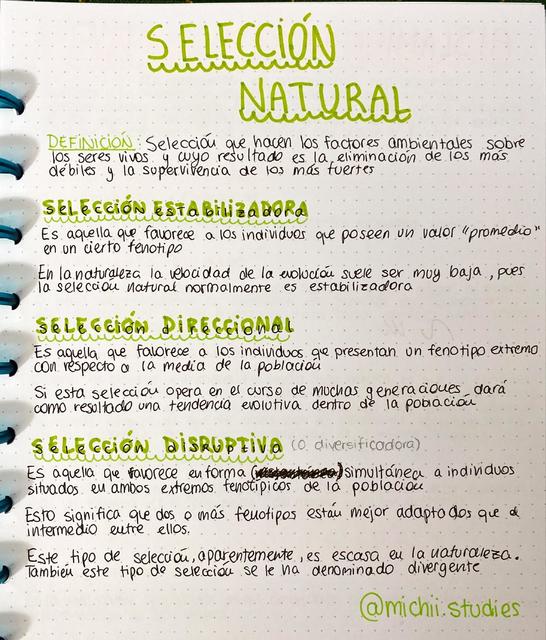 SELECCIÓN
NATURAL
DEFINICIÓN: Selección que hacen los factores ambientales sobre
los seres vivos y cuyo resultado es la eliminación de los más
débiles y la supervivencia de los más fuertes
SELECCIÓN ESTABILIZADORA
Es aquella que favorece a los individuos que poseen un valor "promedio"
en un cierto fenotipo
En la naturaleza la velocidad de la evolución suele ser muy baja, pues
la selección natural normalmente es estabilizadora
SELECCIÓN DIRECCIONAL
Es aquella que favorece a los individuos que presentan un fenotipo extremo
con respecto a la media de la población
Si esta selección opera en el curso de muchas generaciones, dará
como resultado una tendencia evolutiva dentro de la población
SELECCIÓN DISRUPTIVA (o diversificadora)
Es aquella que favorece en forma simultánea a individuos
situados en ambos extremos fenotípicos de la población
Esto significa que dos o más fenotipos están mejor adaptados que el
intermedio entre ellos.
Este tipo de selección, aparentemente, es escasa en la naturaleza.
También este tipo de selección se le ha denominado divergente
@michii.studies